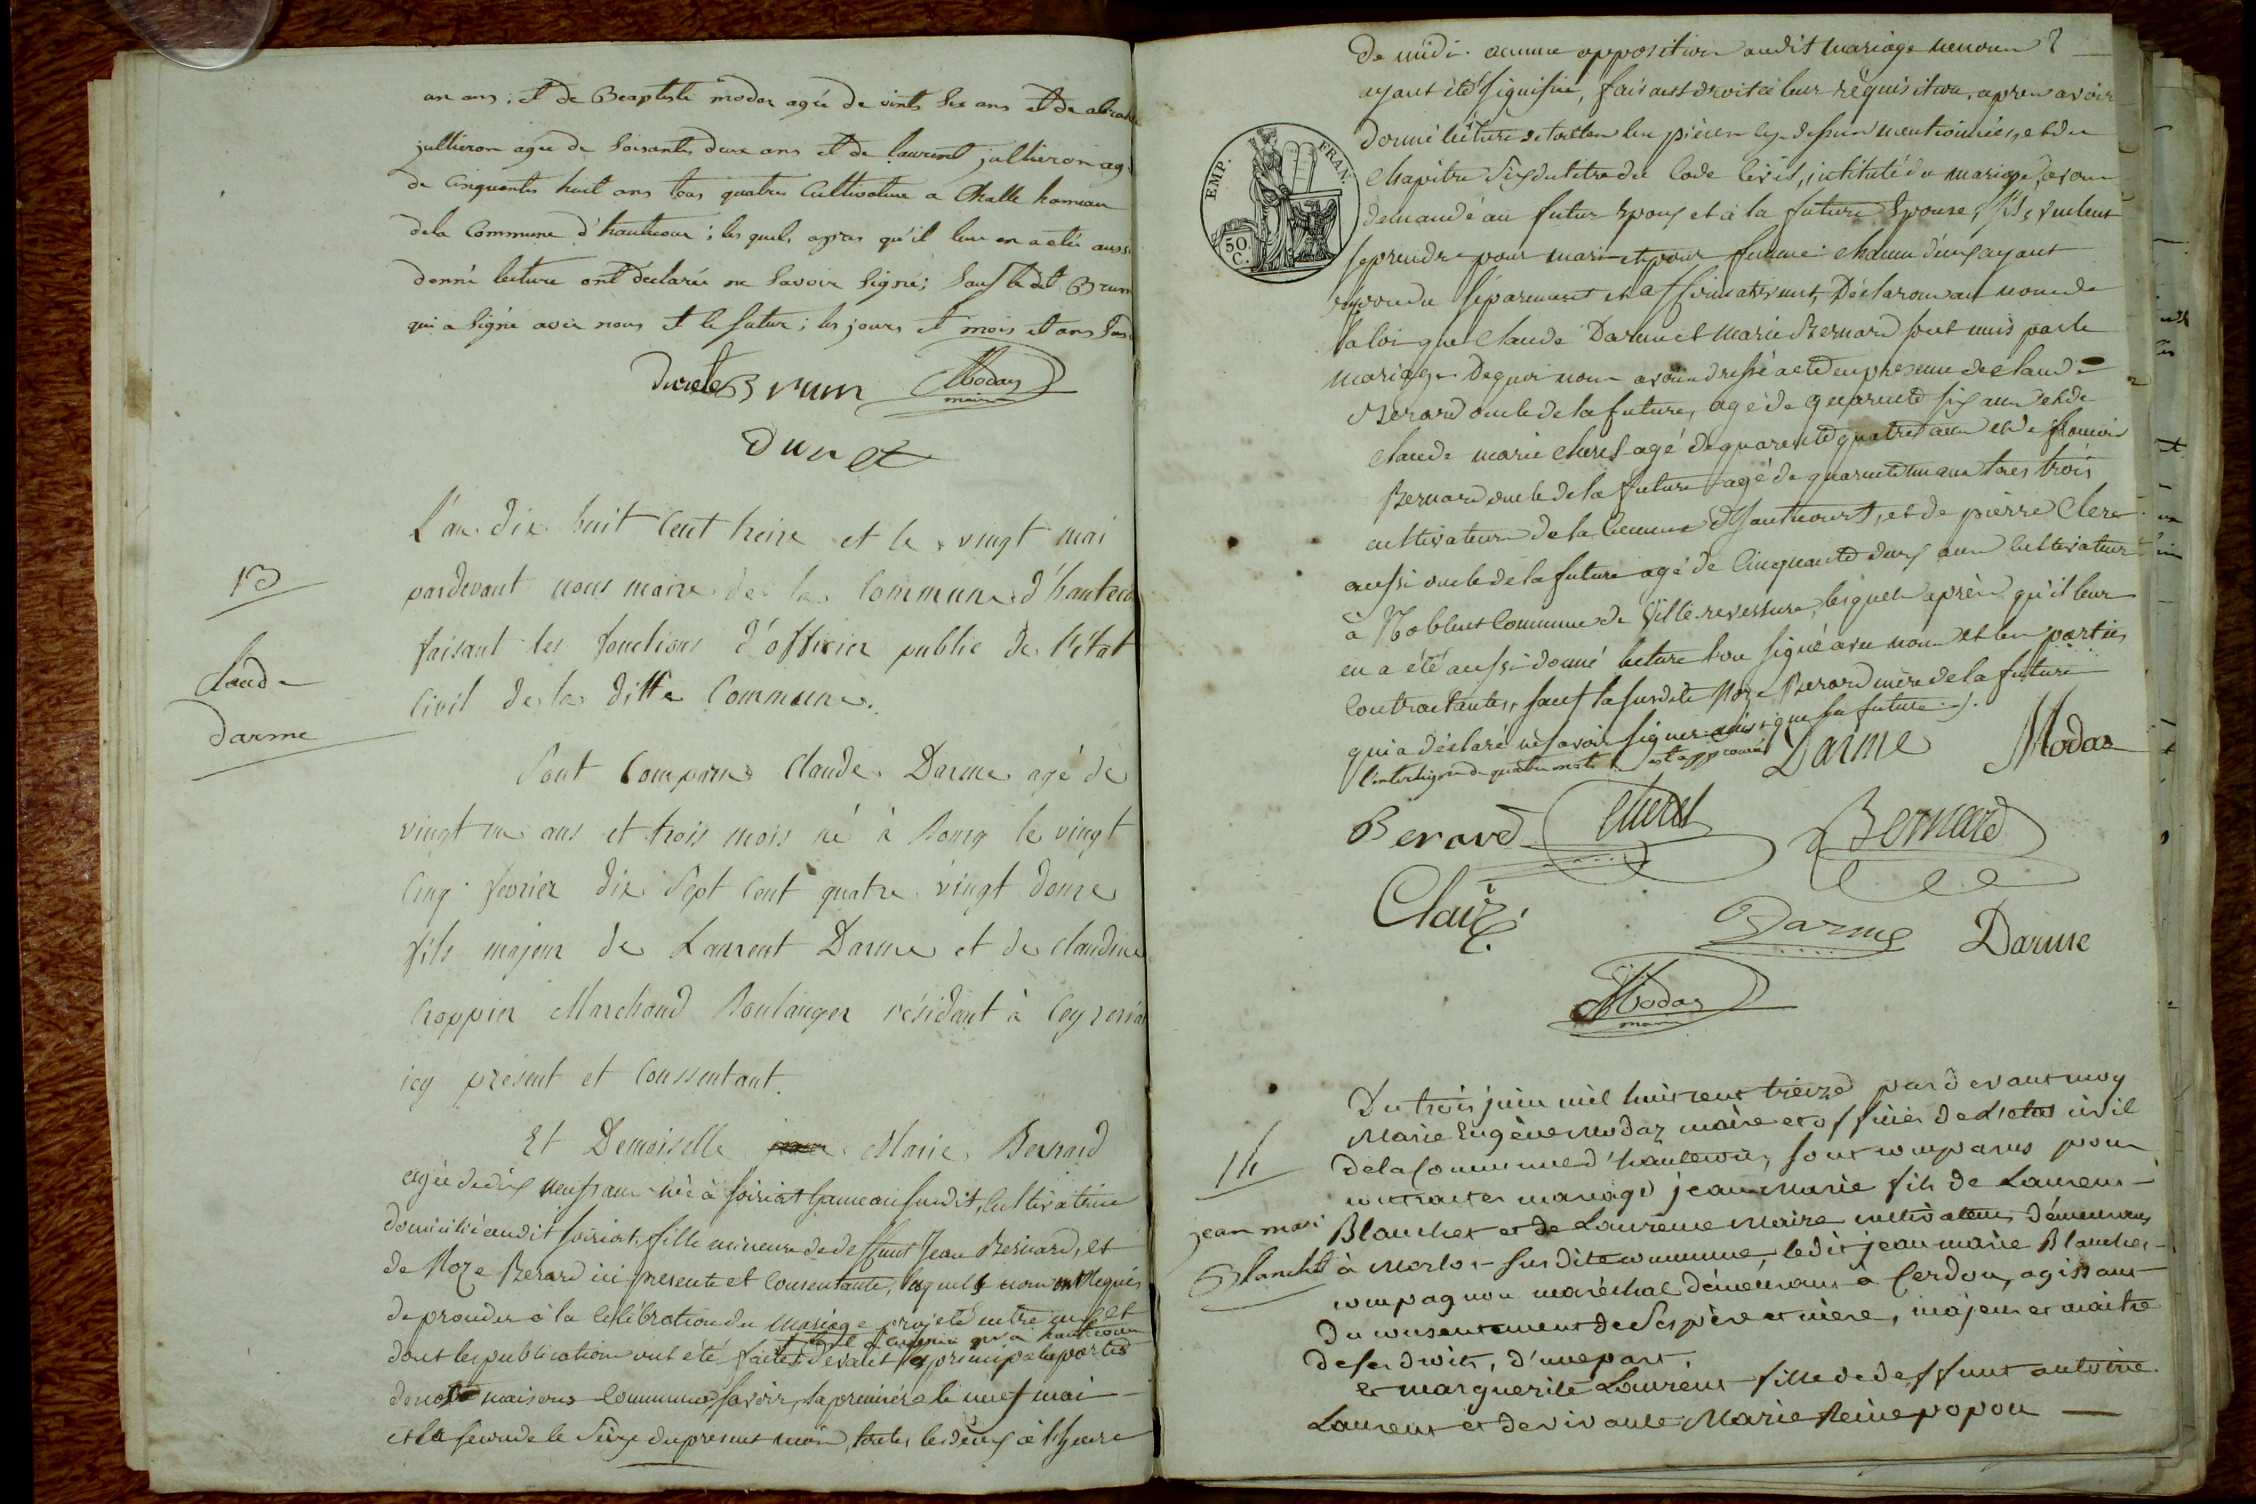 an ans ; et de Beaptiste modas agée de vints six ans et de
jullieron agée de soisante deux ans et de laurent jullieron ag
de cinquante huit ans tous quatre cultivateur a Challe hameau
de la Commune d'hautecour ; les quels, apras qu'il leur en a été aussi
donné lecture ont déclarée ne savoir signé ; sauf le dt Brun
qui a signé avec nous et le futur ; les jours et mois et ans sus
Brun Modas
maire
duret
L'an dix huit cent treize et le vingt mai
pardevant nous maire de la Commune d'hauteco
faisant les fonctions d'officier public de l'état
civil de la ditte Commune.
13
Claude
Darme
Sont comparus Claude Darme agé de
vingt un ans et trois mois né à Bourg le vingt
cinq fevrier dix sept cent quatre vingt douze
fils majeur de Laurent Darme et de Claudine
Croppier Marchand Boulanger résidant à Ceyzeria
icy présent et conssentant.
Et Demoiselle Marie Bernard
agée de dix neuf ans née à soiriat hameau susdit, cultivatrice
domiciliée audit soiriat, fille mineure de deffunt Jean Bernard, et
de Roze Berard ici presente et consentante, lesquels nous ont requis
de proceder à la célébration du mariage projeté entre eux et
dont les publications ont été faites devant la principale porte
de notre maisons commune savoir, la premiére le neuf mai
et la seconde le seize du present mois, toutes les deux à l'heure
de midi. aucune opposition audit mariage
ayant été signifiée, faisant droit à leur réquisition, apres avoir
donné lécture de toutes les piéces cy-dessus mentionnées, et du
EMP. FRAN.
50.
C.
chapitre six du titre du Code Civil, intitulé du mariage, avons
demandé au futur Epoux et à la future Epouse, s'ils veulent
se prendre pour mari et pour femme. chacun d'eux ayant
répondu séparement et affirmativement, Déclarons au nom de
la loi que Claude Darme et marie Bernard sont unis par le
mariage. De quoi nous avons dressé acte en presence de claude
Berard oncle de la future, agé de quarante six ans et de
claude marie Cheret agé de quarante quatre ans et de
Bernard oncle de la future agé de quarante un ans tous trois
cultivateurs de la Commune d'hautecourt, et de pierre Clerc
aussi oncle de la future agé de Cinquante deux ans cultivateur
à Noblens commune de Villereversure, lesquels après qu'il leur
en a été aussi donné lecture l'on signé avec nous et les parties
contractantes, sauf la susdite Roze Berard mère de la future
qui a déclaré ne savoir signer ainsi que la future.
l'interligne de quatre mots est approuvé Darme Modas
Berard Cheret Bernard
Clair Darme Darme
Modas
maire
Du trois juin mil huit cent treize par devant moy
Marie Eugène Modaz maire et officier de l'état civil
14
de la Commune d'hautecour, sont comparus pour
contracter mariage jean marie fils de Laurent
jean mari
Blanchet
Blanchet et de Laurence Maire cultivateurs démeurans
à merlos susdite commune, ledit jean marie Blanchet
compagnon maréchal démeurant à Cerdon, agissant
du consentement de ses père et mère, majeur et maître
de ses droits, d'une part,
et marguerite Laurent fille de deffunt antoine
Laurent et de vivante Marie Reine popon